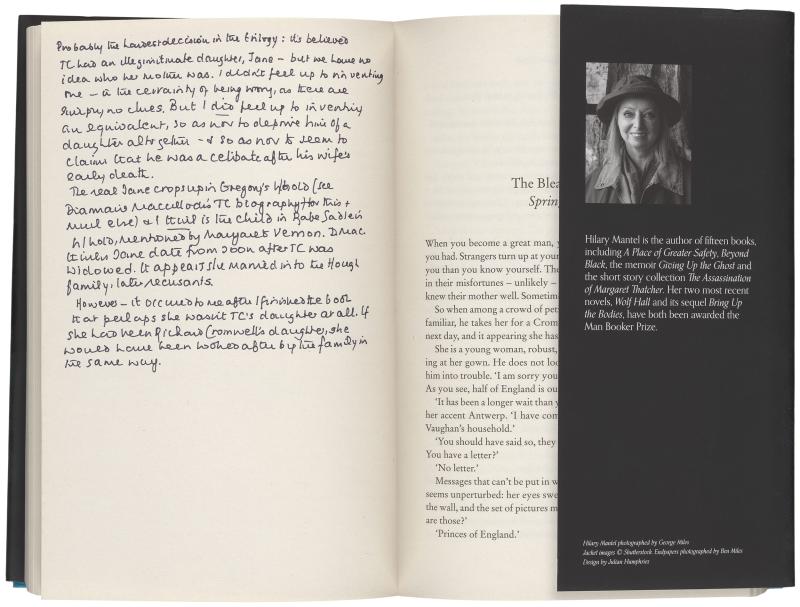 Probably the hardest decision in the trilogy: it's believed
TC had an illegitimate daughter, Jane – but we have no
idea who her mother was. I didn't feel up to inventing
one – in the certainty of being wrong, as there are
simply no clues. But I did feel up to inventing
an equivalent, so as not to deprive him of a
daughter altogether – & so as not to seem to
claim that he was a celibate after his wife's
early death.
The real Jane crops up in Gregory's h/hold (see
Diarmaid Macculloch's TC biography for this +
much else) & I think is the child in Rafe Sadler's
h/hold, mentioned by Margaret Vernon. D Mac
thinks Jane dates from soon after TC was
widowed. It appears she married into the Hough
family, later recusants.
However – it occurred to me after I finished the book
that perhaps she wasn't TC's daughter at all. If
she had been Richard Cromwell's daughter, she
would have been looked after by the family in
the same way.
The Blea
Spring
When you become a great man, y
you had. Strangers turn up at your
you than you know yourself. The
in their misfortunes – unlikely –
knew their mother well. Sometim
So when among a crowd of peti
familiar, he takes her for a Crom
next day, and it appearing she has
She is a young woman, robust,
ing at her gown. He does not loo
him into trouble. 'I am sorry you
As you see, half of England is ou
'It has been a longer wait than y
her accent Antwerp. 'I have com
Vaughan's household.'
'You should have said so, they
You have a letter?'
'No letter.'
Messages that can't be put in w
seems unperturbed: her eyes swe
the wall, and the set of pictures m
are those?'
'Princes of England.'
Hilary Mantel is the author of fifteen books,
including A Place of Greater Safety, Beyond
Black, the memoir Giving Up the Ghost and
the short story collection The Assassination
of Margaret Thatcher. Her two most recent
novels, Wolf Hall and its sequel Bring Up
the Bodies, have both been awarded the
Man Booker Prize.
Hilary Mantel photographed by George Miles
Jacket images © Shutterstock Endpapers photographed by Ben Miles
Design by Julian Humphries